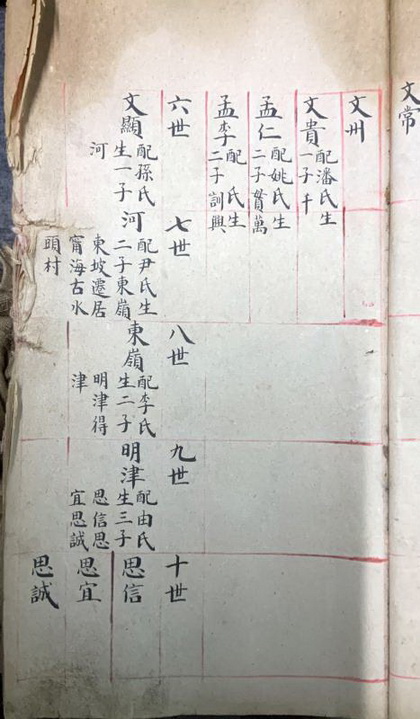 文常
文州
文貴
配潘氏生
一子千
孟仁
配姚氏生
二子貫萬
孟李
配氏生
二子訓興
六世
文顯
配孫氏
生一子
河
七世
河
配尹氏生
二子東嶺
東坡遷居
甯海古水
頭村
八世
東嶺
配李氏
生二子
明津得
津
九世
明津
配由氏
生三子
思信思
宜思誠
十世
思信
思宜
思誠